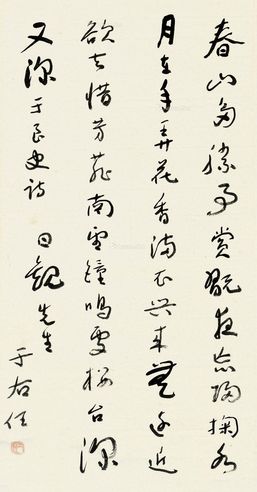 春山多勝事賞翫夜忘歸掬水
月在手弄花香滿衣興來無遠近
欲去惜芳菲南望鐘鳴處樓台深
翠微 于良史詩 日觀先生
于右任